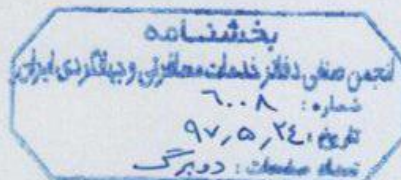 بخشنامه
انجمن صنفی دفاتر خدمات مسافرتی و جهانگردی ایران
شماره: ٦٠٠٨
تاریخ: ٩٧,٥,٢٤
تعداد صفحات: دو برگ